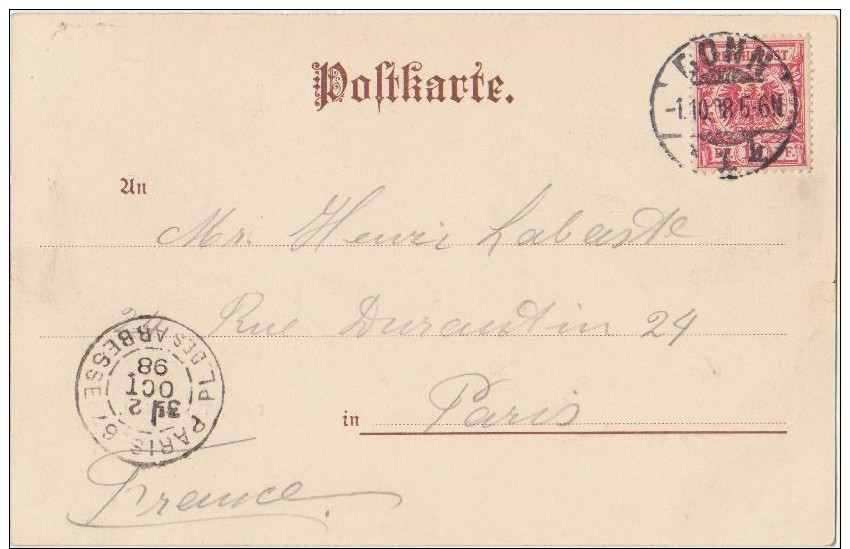 Postkarte.
BONN
-1.10.98.5-6N
1 b
An
Mr. Henri Labaste
24 Rue Durantin 24
in Paris
France
PARIS-67 PL. DES ABBESSES
3E
2
OCT
98